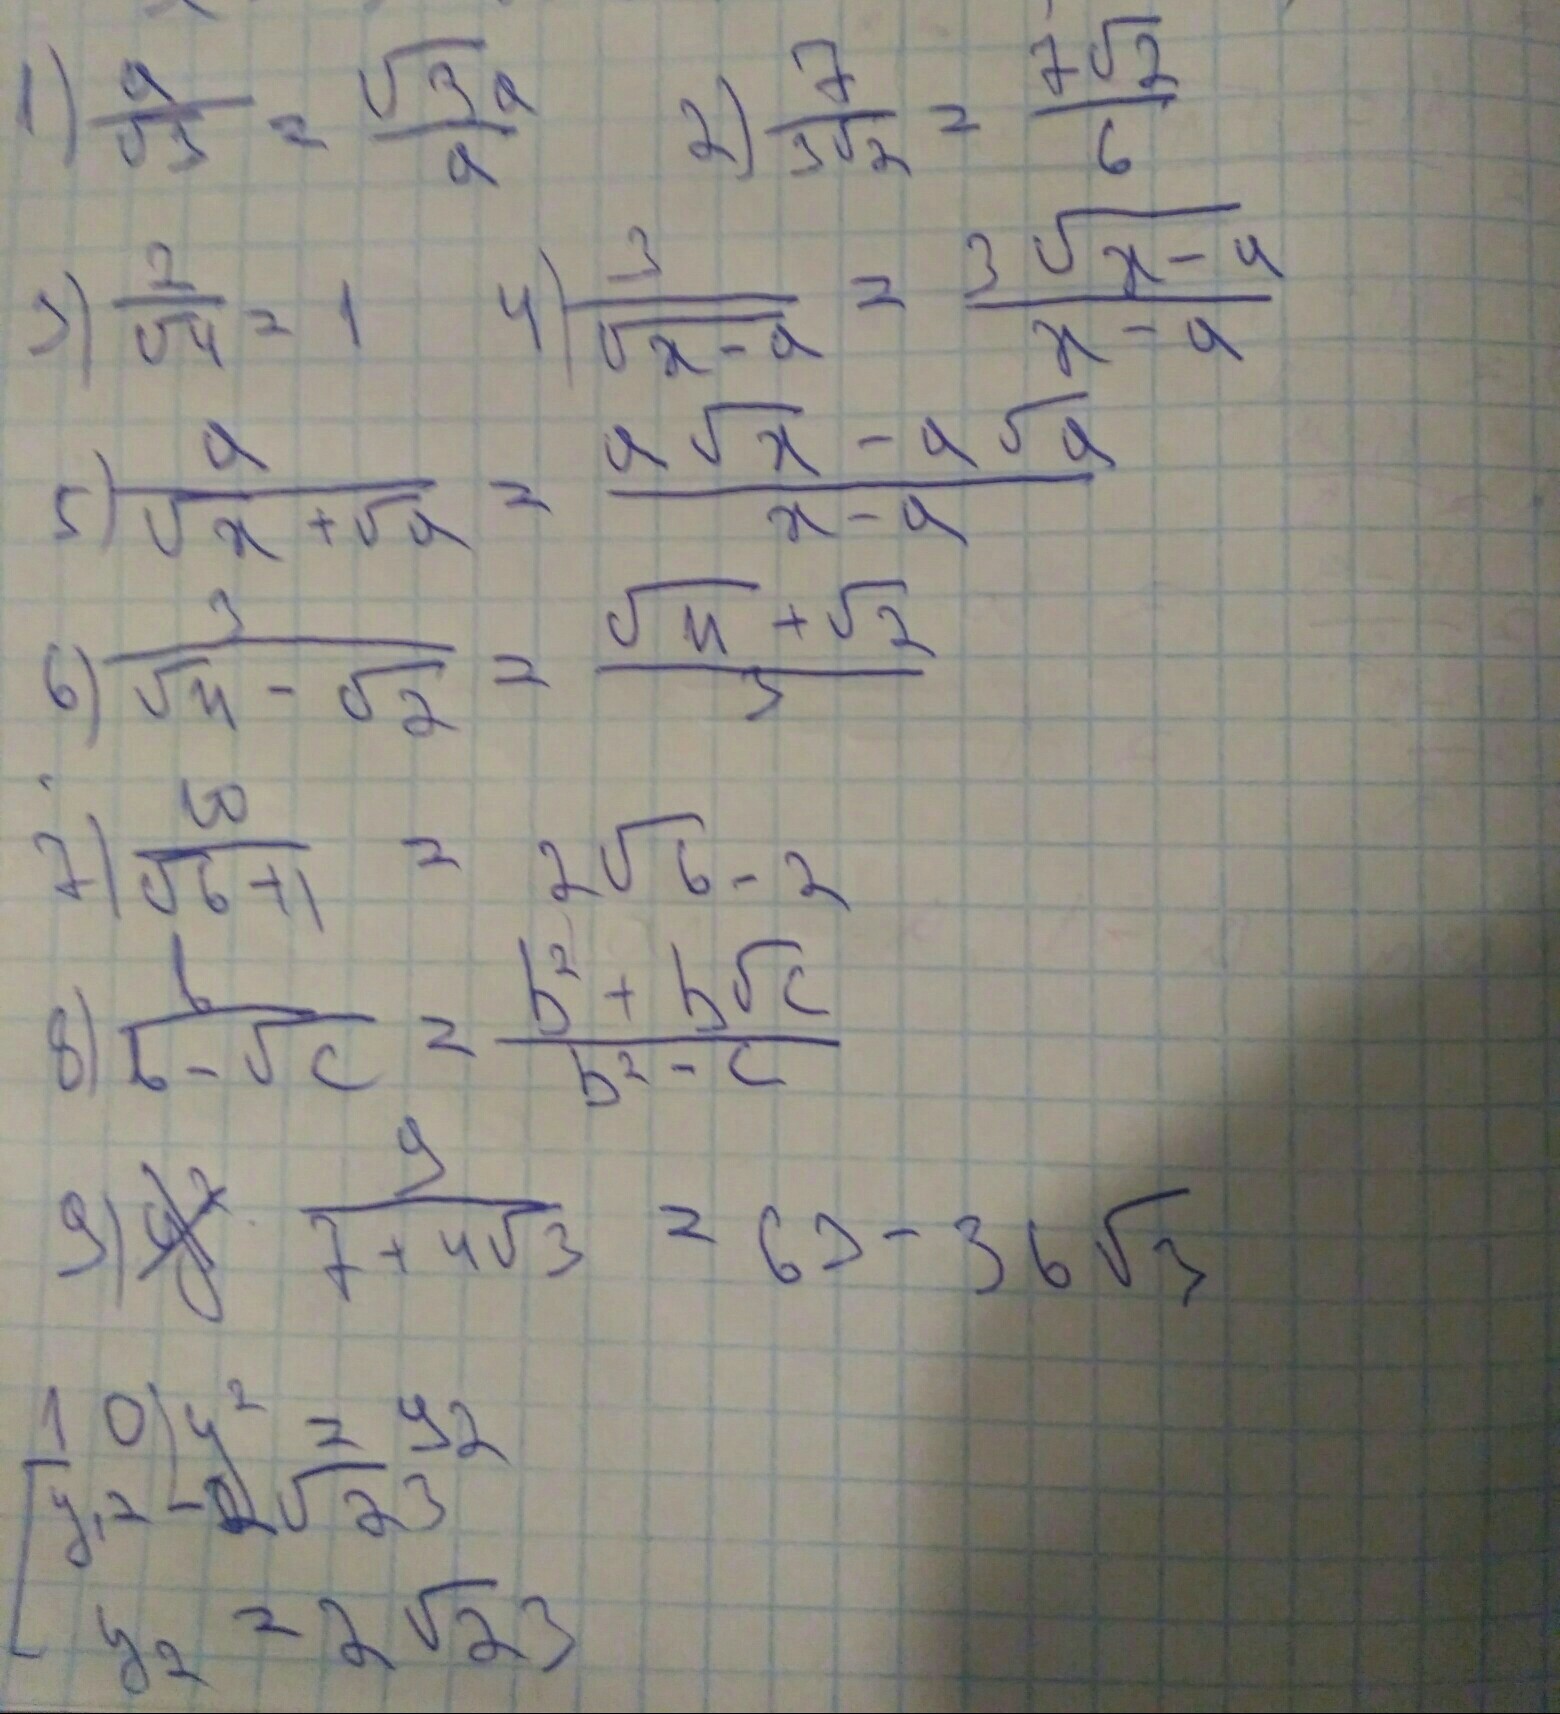 1) a/√3 = √3a/a 2) 7/3√2 = 7√2/6
3) 2/√4 = 1 4) 3/√(x-a) = 3√(x-a)/(x-a)
5) a/(√x+√a) = (a√x-a√a)/(x-a)
6) 3/(√4-√2) = (√4+√2)/3
7) 10/(√6+1) = 2√6-2
8) b/(b-√c) = (b²+b√c)/(b²-c)
9) 9/(7+4√3) = 63-36√3
10) y² = 92
y₁ = -2√23
y₂ = 2√23